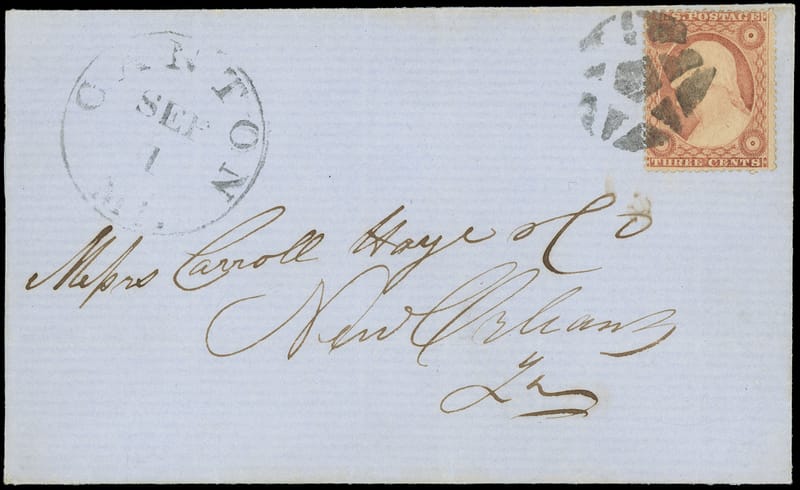 CANTON
SEP
1
MI.
U.S. POSTAGE
THREE CENTS
Messrs Carroll Hoye & Co
New Orleans
La